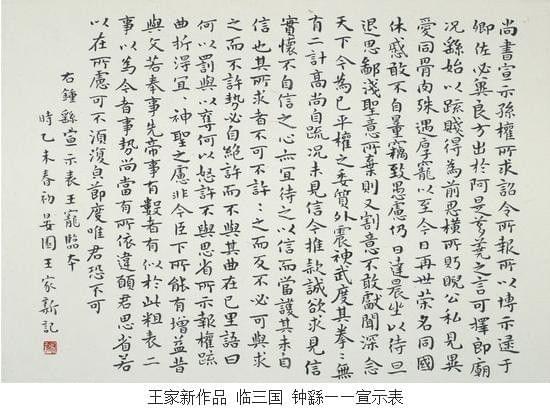 尚書宣示孫權所求詔令所報所以博示逮于
卿佐必冀良方出於阿是芻蕘之言可擇郎廟
況繇始以疏賤得為前恩橫所眖睨公私見異
愛同骨肉殊遇厚寵以至今日再世榮名同國
休慼敢不自量竊致愚慮仍日達晨坐以待旦
退思鄙淺聖意所棄則又割意不敢獻聞深念
天下今為已平權之委質外震神武度其拳〻無
有二計高尚自疏況未見信今推款誠欲求見信
實懷不自信之心亦宜待之以信而當護其未自
信也其所求者不可不許〻之而反不必可與求
之而不許勢必自絕許而不與其曲在己里語曰
何以罰與以奪何以怒許不與思省所示報權疏
曲折得宜〻神聖之慮非今臣下所能有增益昔
與文若奉事先帝事有數者有似於此粗表二
事以為今者事勢尚當有所依違願君思省若
以在所慮可不須復貞節度唯君恐不可
右鍾繇宣示表王寵臨本
時乙未春初晏園王家新記
王家新作品 临三国 钟繇——宣示表